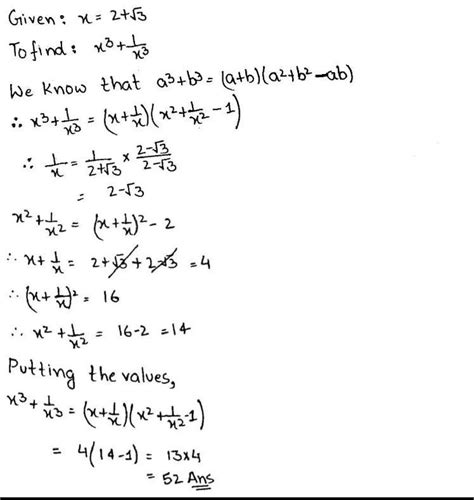 Given: x = 2+√3
To find: x³+1/x³
We know that a³+b³ = (a+b)(a²+b²-ab)
∴ x³+1/x³ = (x+1/x)(x²+1/x²-1)
∴ 1/x = 1/2+√3 × 2-√3/2-√3
= 2-√3
x²+1/x² = (x+1/x)²-2
∴ x+1/x = 2+√3+2-√3 = 4
∴ (x+1/x)² = 16
∴ x²+1/x² = 16-2 = 14
Putting the values,
x³+1/x³ = (x+1/x)(x²+1/x²-1)
= 4(14-1) = 13×4
= 52 Ans